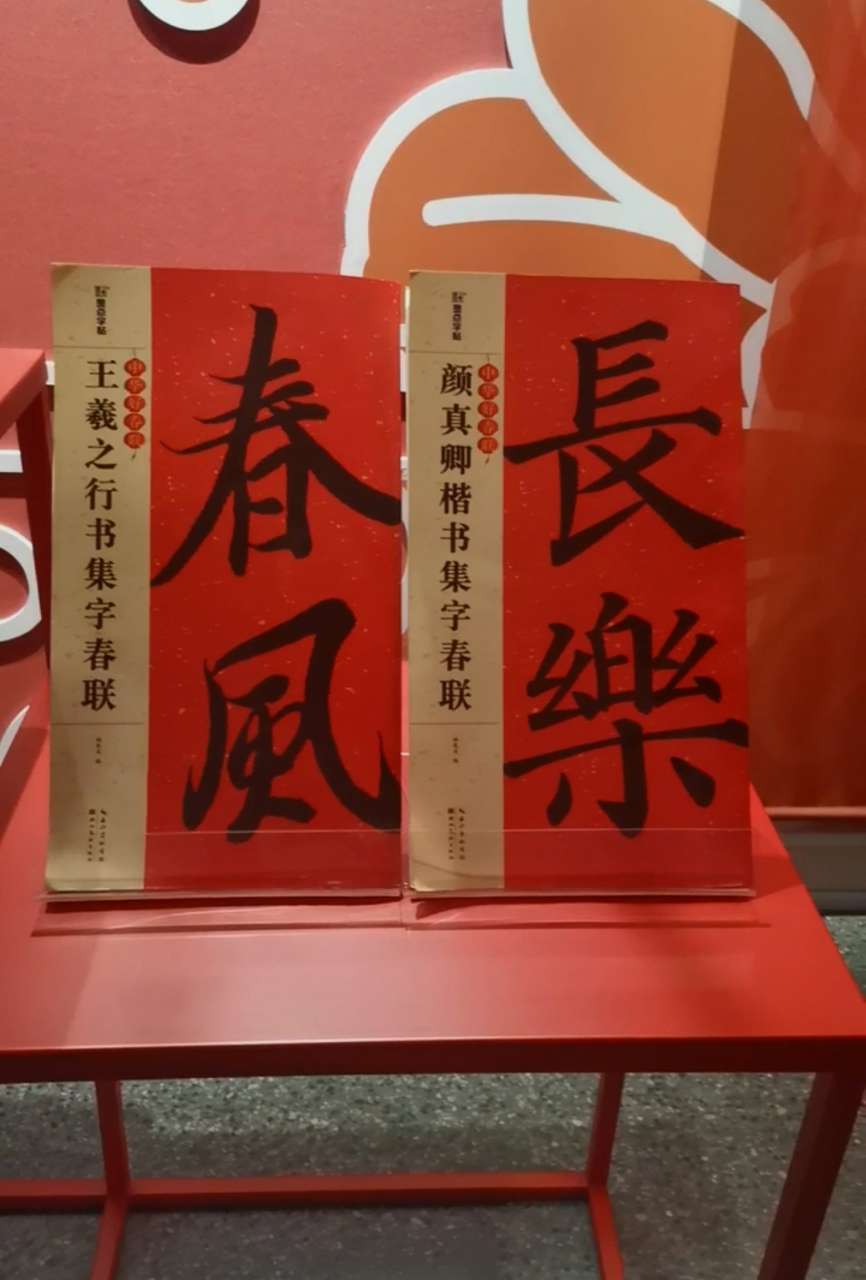 墨点字帖
中华好春联
王羲之行书集字春联
春風
墨点字帖
中华好春联
颜真卿楷书集字春联
長樂